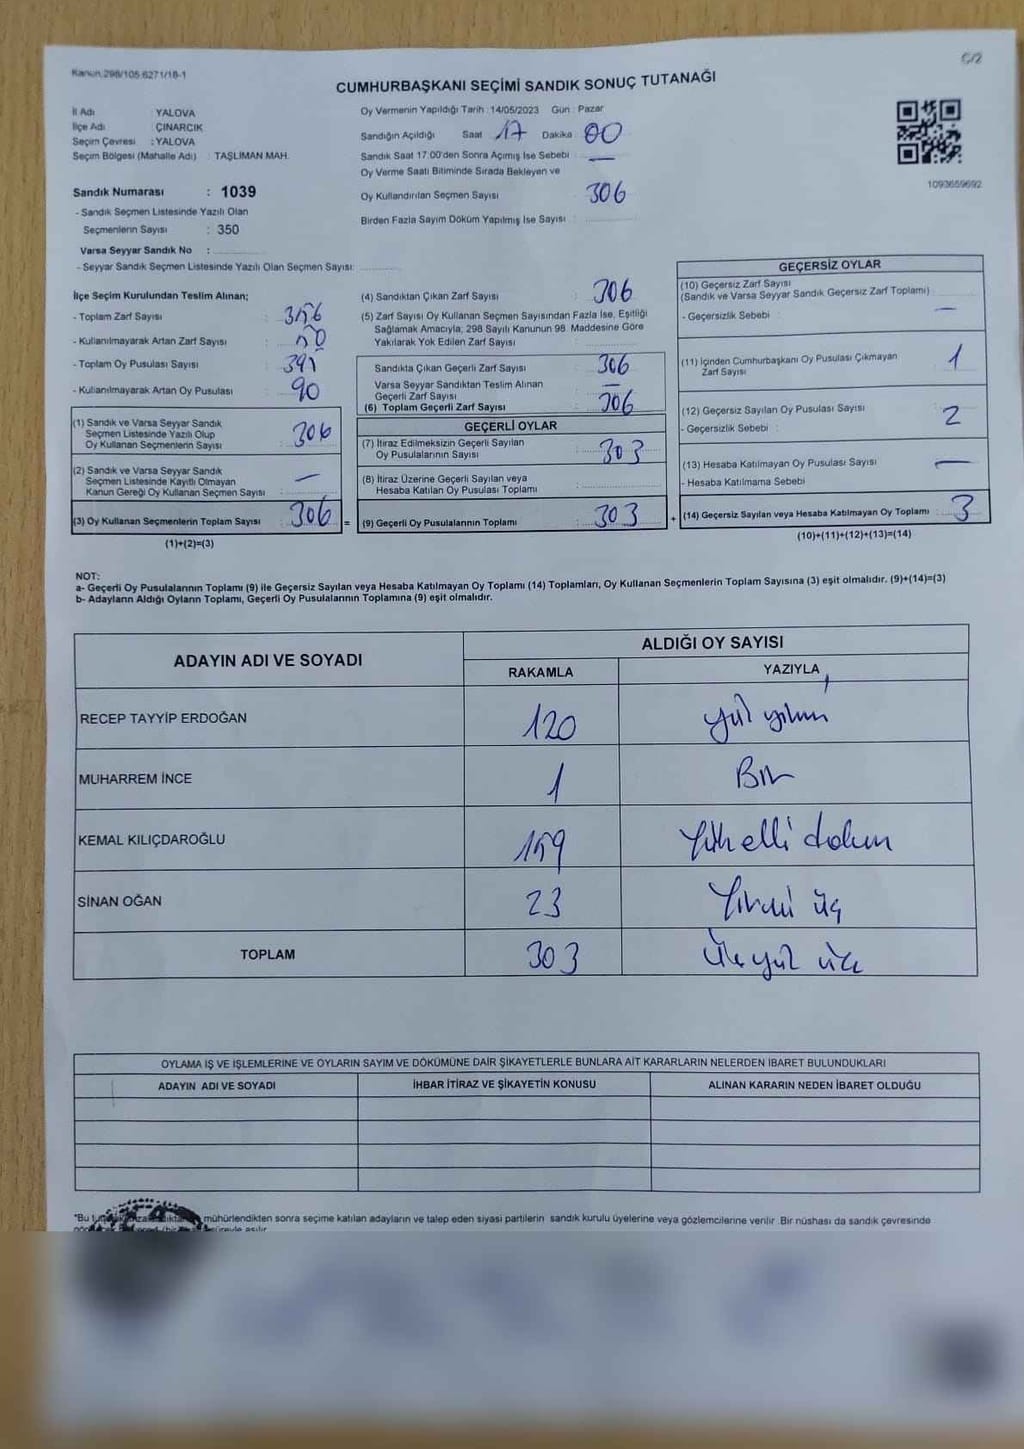 Kanun:298/105.6271/18-1
C/2
CUMHURBAŞKANI SEÇİMİ SANDIK SONUÇ TUTANAĞI
İl Adı YALOVA
İlçe Adı ÇINARCIK
Seçim Çevresi : YALOVA
Seçim Bölgesi (Mahalle Adı) : TAŞLIMAN MAH.
Sandık Numarası : 1039
- Sandık Seçmen Listesinde Yazılı Olan
Seçmenlerin Sayısı : 350
Varsa Seyyar Sandık No :
- Seyyar Sandık Seçmen Listesinde Yazılı Olan Seçmen Sayısı:
Oy Vermenin Yapıldığı Tarih : 14/05/2023 Gün : Pazar
Sandığın Açıldığı Saat 17 Dakika 00
Sandık Saat 17:00'den Sonra Açımış İse Sebebi : —
Oy Verme Saati Bitiminde Sırada Bekleyen ve
Oy Kullandırılan Seçmen Sayısı 306
Birden Fazla Sayım Döküm Yapılmış İse Sayısı :
1093659692
İlçe Seçim Kurulundan Teslim Alınan;
- Toplam Zarf Sayısı : 356
- Kullanılmayarak Artan Zarf Sayısı : 50
- Toplam Oy Pusulası Sayısı : 395
- Kullanılmayarak Artan Oy Pusulası : 90
(1) Sandık ve Varsa Seyyar Sandık
Seçmen Listesinde Yazılı Olup
Oy Kullanan Seçmenlerin Sayısı : 306
(2) Sandık ve Varsa Seyyar Sandık
Seçmen Listesinde Kayıtlı Olmayan
Kanun Gereği Oy Kullanan Seçmen Sayısı : —
(3) Oy Kullanan Seçmenlerin Toplam Sayısı : 306 =
(1)+(2)=(3)
(4) Sandıktan Çıkan Zarf Sayısı : 306
(5) Zarf Sayısı Oy Kullanan Seçmen Sayısından Fazla İse, Eşitliği
Sağlamak Amacıyla; 298 Sayılı Kanunun 98. Maddesine Göre
Yakılarak Yok Edilen Zarf Sayısı :
Sandıkta Çıkan Geçerli Zarf Sayısı : 306
Varsa Seyyar Sandıktan Teslim Alınan
Geçerli Zarf Sayısı : —
(6) Toplam Geçerli Zarf Sayısı : 306
GEÇERLİ OYLAR
(7) İtiraz Edilmeksizin Geçerli Sayılan
Oy Pusulalarının Sayısı : 303
(8) İtiraz Üzerine Geçerli Sayılan veya
Hesaba Katılan Oy Pusulası Toplamı :
(9) Geçerli Oy Pusulalarının Toplamı : 303 +
GEÇERSİZ OYLAR
(10) Geçersiz Zarf Sayısı
(Sandık ve Varsa Seyyar Sandık Geçersiz Zarf Toplamı) :
- Geçersizlik Sebebi : —
(11) İçinden Cumhurbaşkanı Oy Pusulası Çıkmayan
Zarf Sayısı 1
(12) Geçersiz Sayılan Oy Pusulası Sayısı 2
- Geçersizlik Sebebi :
(13) Hesaba Katılmayan Oy Pusulası Sayısı —
- Hesaba Katılmama Sebebi
(14) Geçersiz Sayılan veya Hesaba Katılmayan Oy Toplamı : 3
(10)+(11)+(12)+(13)=(14)
NOT:
a- Geçerli Oy Pusulalarının Toplamı (9) ile Geçersiz Sayılan veya Hesaba Katılmayan Oy Toplamı (14) Toplamları, Oy Kullanan Seçmenlerin Toplam Sayısına (3) eşit olmalıdır. (9)+(14)=(3)
b- Adayların Aldığı Oyların Toplamı, Geçerli Oy Pusulalarının Toplamına (9) eşit olmalıdır.
ADAYIN ADI VE SOYADI
ALDIĞI OY SAYISI
RAKAMLA YAZIYLA
RECEP TAYYİP ERDOĞAN 120 yüz yirmi
MUHARREM İNCE 1 Bir
KEMAL KILIÇDAROĞLU 159 Yüz elli dokuz
SİNAN OĞAN 23 Yirmi üç
TOPLAM 303 Üç yüz üç
OYLAMA İŞ VE İŞLEMLERİNE VE OYLARIN SAYIM VE DÖKÜMÜNE DAİR ŞİKAYETLERLE BUNLARA AİT KARARLARIN NELERDEN İBARET BULUNDUKLARI
ADAYIN ADI VE SOYADI İHBAR İTİRAZ VE ŞİKAYETİN KONUSU ALINAN KARARIN NEDEN İBARET OLDUĞU
*Bu mühürlendikten sonra seçime katılan adayların ve talep eden siyasi partilerin sandık kurulu üyelerine veya gözlemcilerine verilir .Bir nüshası da sandık çevresinde